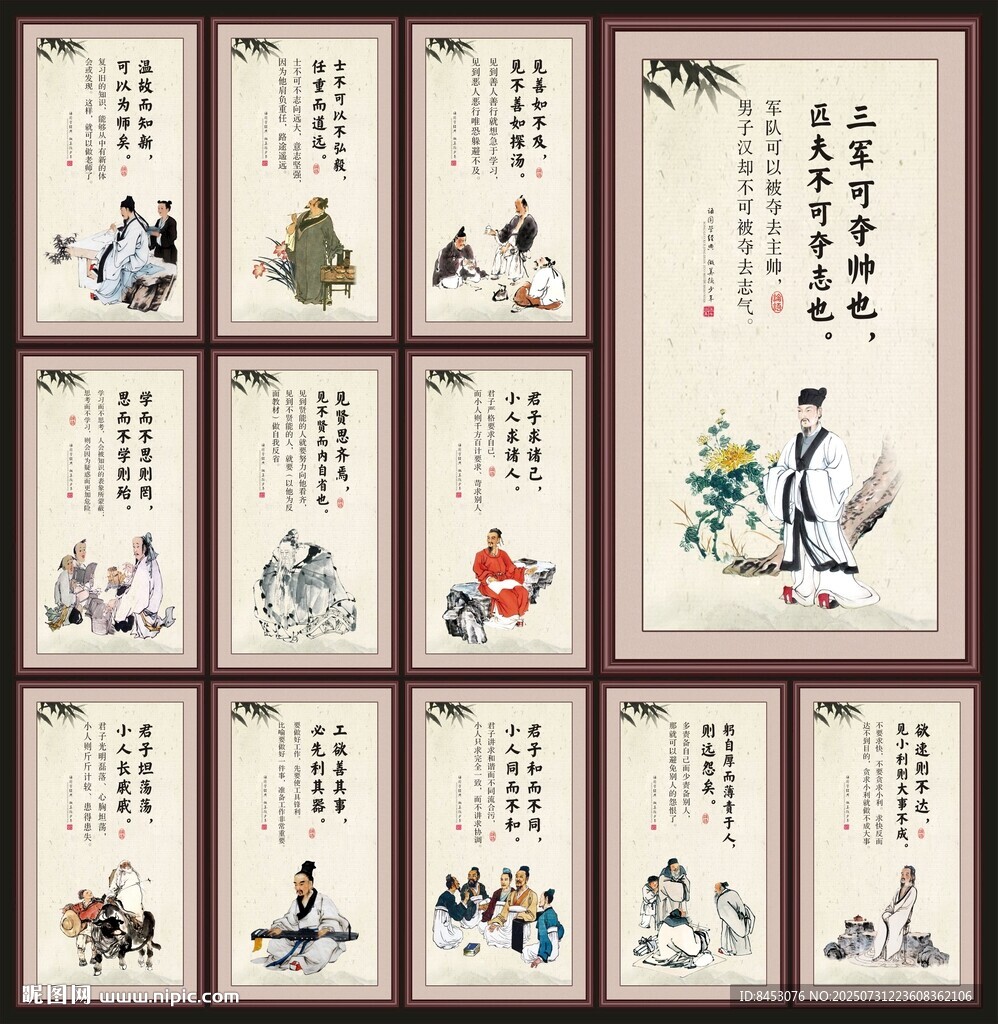 温故而知新，
可以为师矣。
复习旧的知识，能够从中有新的体
会或发现。这样，就可以做老师了。
士不可以不弘毅，
任重而道远。
士不可不志向远大，意志坚强，
因为他肩负重任，路途遥远。
见善如不及，
见不善如探汤。
见到善人善行就想急于学习，
见到恶人恶行唯恐躲避不及
三军可夺帅也，
匹夫不可夺志也。
军队可以被夺去主帅，
男子汉却不可被夺去志气。
論語
诵国学经典 做美德少年
学而不思则罔，
思而不学则殆。
学习而不思考，人会被知识的表象所蒙蔽；
思考而不学习，则会因为疑惑而更加危险。
见贤思齐焉，
见不贤而内自省也。
见到贤能的人就要努力向他看齐，
见到不贤能的人，就要（以他为反
面教材）做自我反省
君子求诸己，
小人求诸人。
君子严格要求自己，
而小人则千方百计要求、苛求别人。
君子坦荡荡，
小人长戚戚。
君子光明磊落、心胸坦荡，
小人则斤斤计较、患得患失。
工欲善其事，
必先利其器。
要做好工作，先要使工具锋利。
比喻要做好一件事，准备工作非常重要
君子和而不同，
小人同而不和。
君子讲求和谐而不同流合污，
小人只求完全一致，而不讲求协调
躬自厚而薄责于人，
则远怨矣。
多责备自己而少责备别人，
那就可以避免别人的怨恨了
欲速则不达，
见小利则大事不成。
不要求快，不要贪求小利。求快反而
达不到目的，贪求小利就做不成大事
昵图网 www.nipic.com
ID:8453076 NO:20250731223608362106